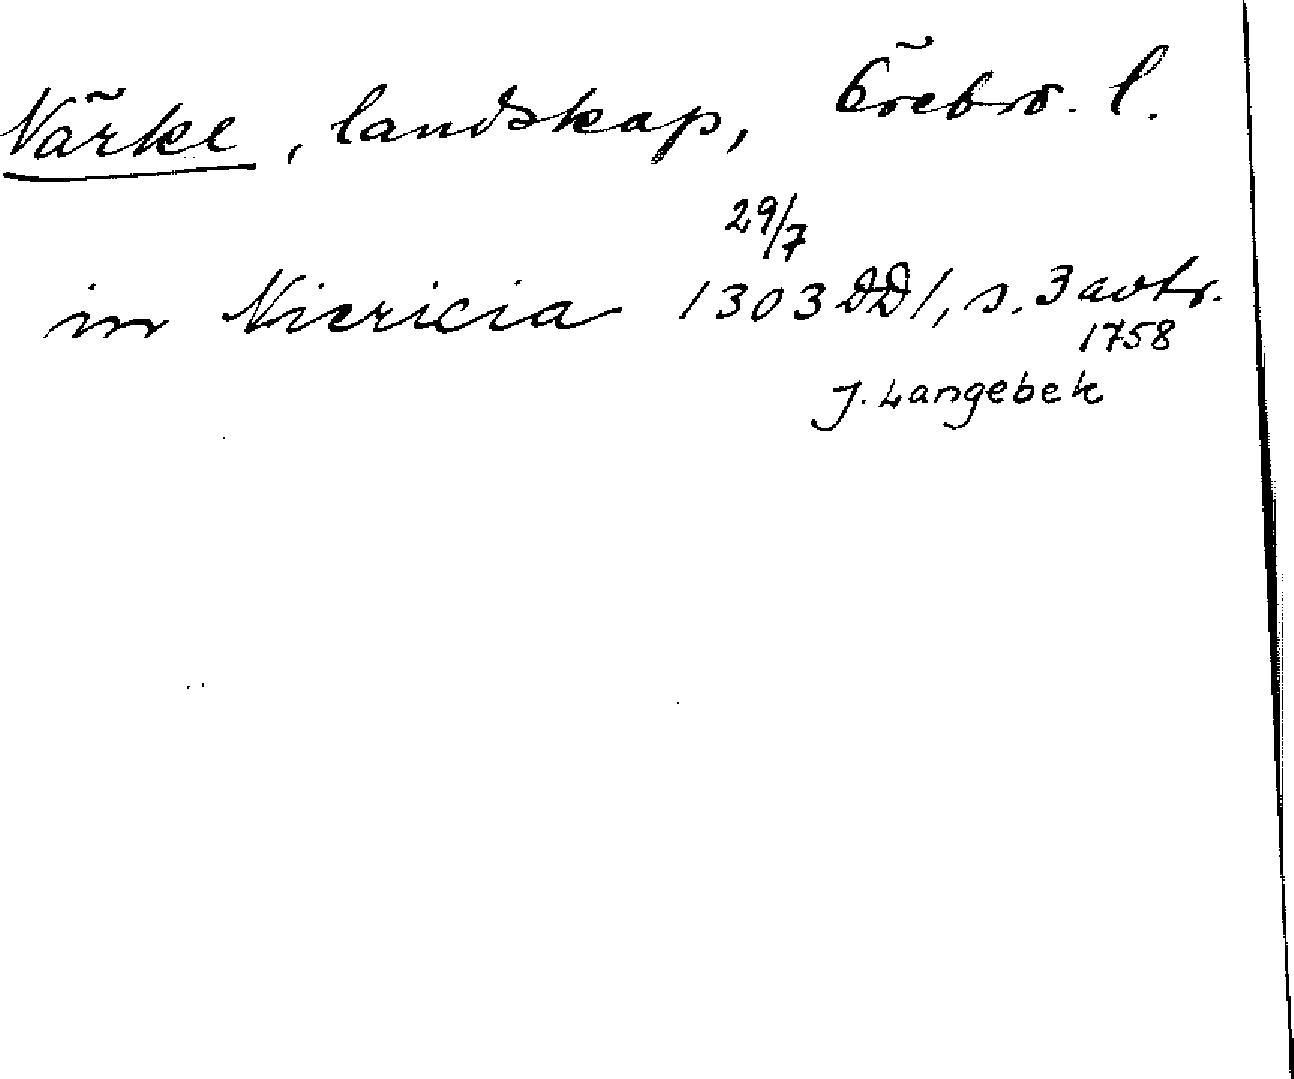 Närke, landskap, Örebro. l.
29/7
in Niericia 1303 DD 1, s. 3 avtr.
1758
J. Langebek